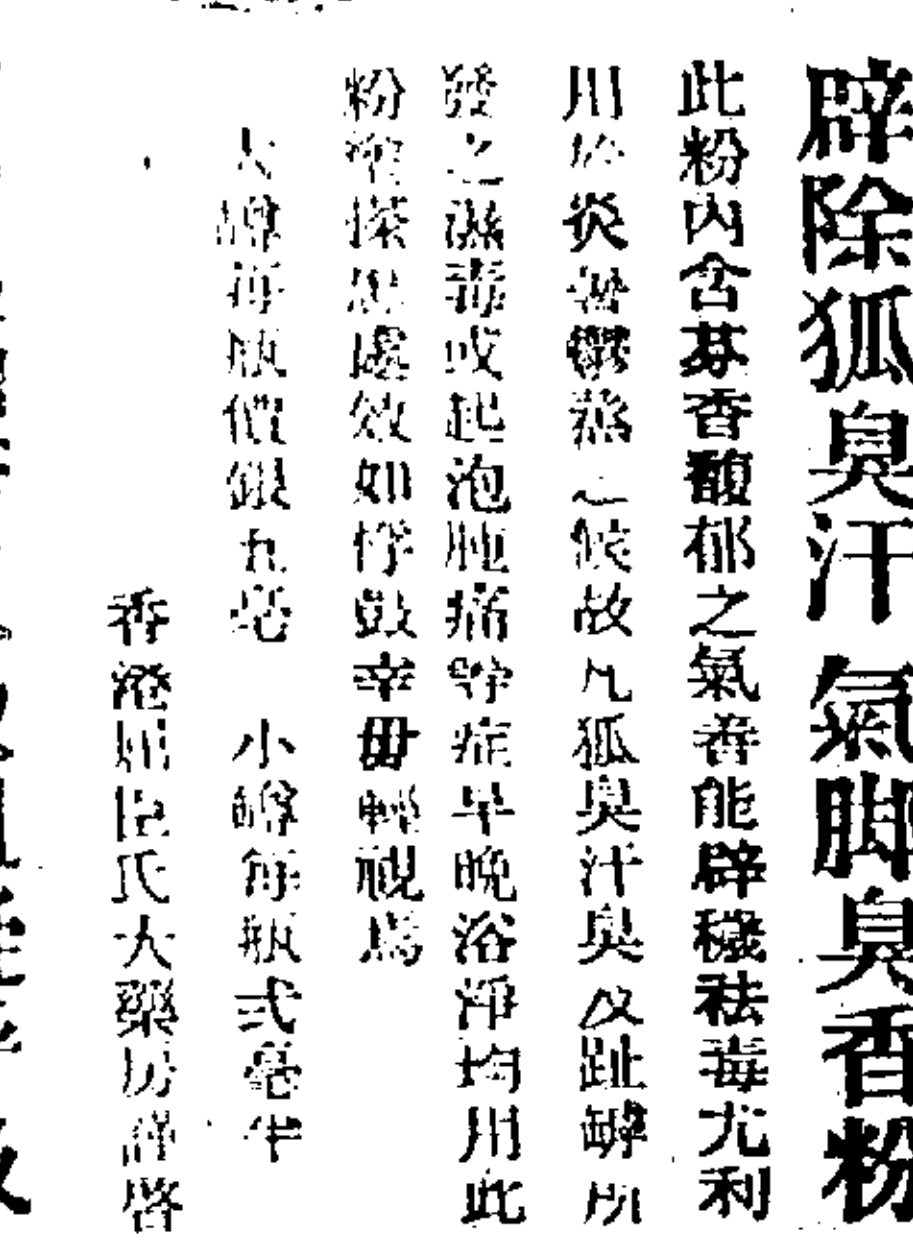 辟除狐臭汗氣脚臭香粉
此粉內含芬香馥郁之氣善能辟穢祛毒尤利
用於炎暑鬱蒸之候故凡狐臭汗臭及趾罅所
發之濕毒或起泡腫痛等症早晚浴淨均用此
粉搽患處效如桴鼓幸毋輕視焉
大罇每瓶價銀五毫 小罇每瓶弍毫半
香港屈臣氏大藥房謹啓